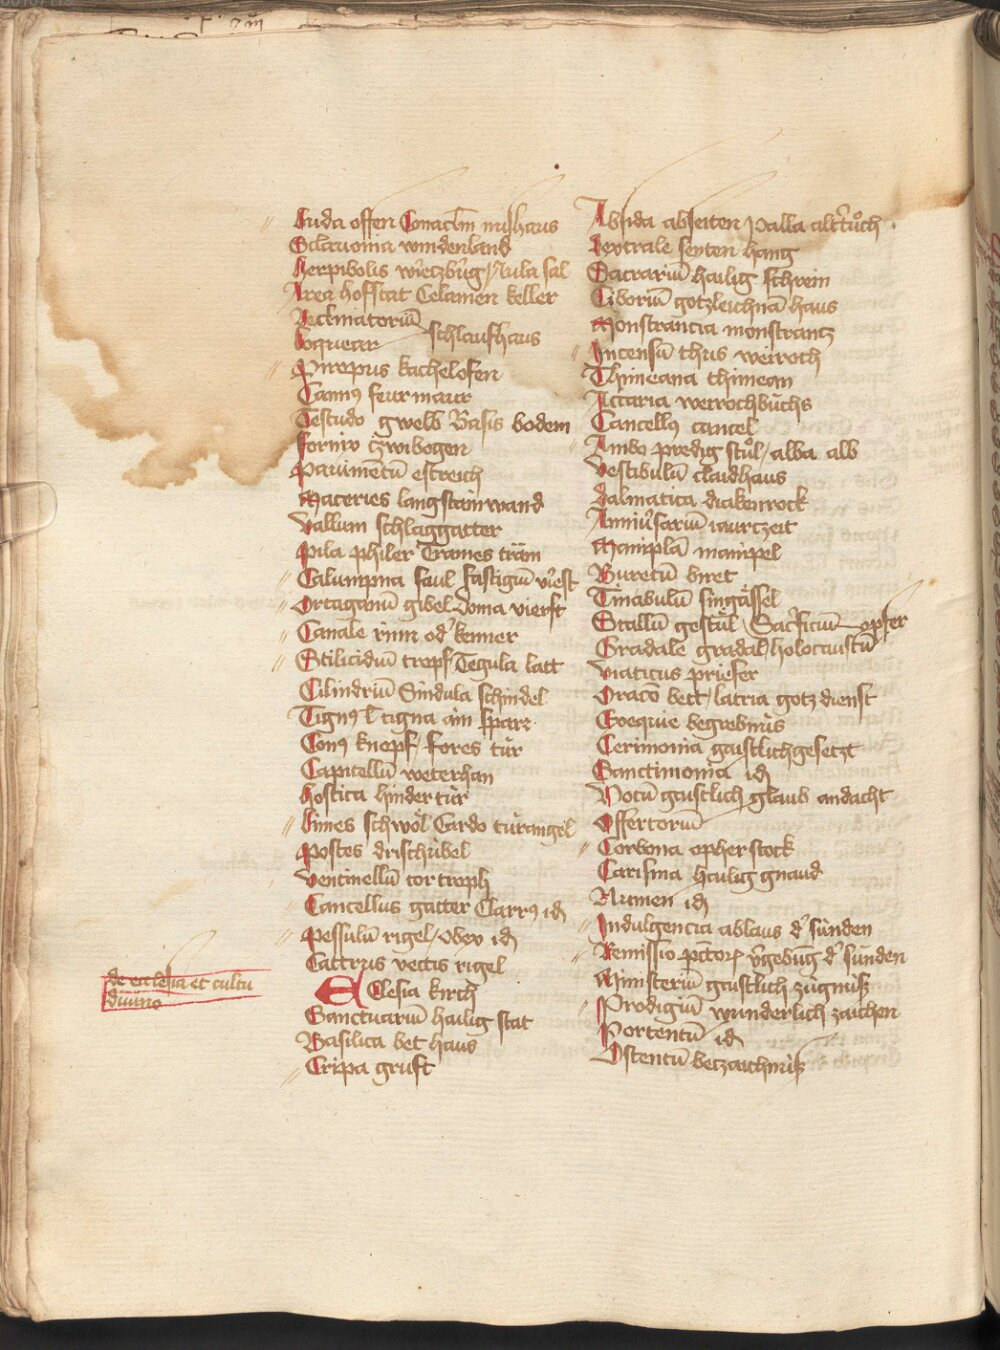 Buda offen Conaclm mushaus
Sclauonia windenland
Herpibolis wirtzburg / Aula sal
Area hofstat Celamen keller
schlaufhaus
Piropus kachelofen
Camus feurmaur
Testudo gwelb Basis bodem
Fornix tzwibogen
Pauimentū estreich
Maceries langstainwand
Vallum schlaggatter
Pila philer Trames träm
Calumpna saul fastigiū virst
Ortaganū gibel Doma vierst
Canale rinn od' kenner
Stilicidiū tropf Tegula latt
Cilindriū Sindula schindel
Tignus l tigna ain sparr
Conus knopf / fores tür
Capitellū weterhan
Hostica hinder tür
Limes schwöl Cardo türangel
Postes drischübel
Ventinellū tor
Cancellus gatter Clarrus id
Pessulū rigel / Obex id
vectis rigel
de ecclesia et cultu
diuino
Eclesia kirch
Sanctuariū hailig stat
Basilica bet haus
Cripa gruft
Absida abseiten Palla altertuch
Dextrale seyten hang
Sacrariū hailig schrein
Ciboriū gotzleichnā haus
Monstrancia monstrantz
Incensū thus weiroch
Thimeana thimean
Accaria weirochbüchs
Cancellus cancel
Ambo predig stůl / alba alb
Vestibulū claidhaus
Dalmatica diakenrock
Anniūsariū iaurtzeit
Maniplā manipel
Biretū biret
Tinabulū singässel
Stallū gestül / Sacrificiū opfer
Gradale gradal / holocaustū
Viaticus priefer
Oracō bett / latria gotz dienst
Exequie begrebnus
Cerimonia gaistlichgesetzt
Sanctimonia id
Votū gaistlich glaub andacht
Offertoriū
Corbona opherstock
Carisma hailig gnaud
Numen id
Indulgencia ablaus d' sünden
Remissio pctor v'gebung d' sünden
Ministeriū gaistlich zügnuss
Prodigiū wunderlich zaichen
Portentū id
Ostentū betzaichnuss